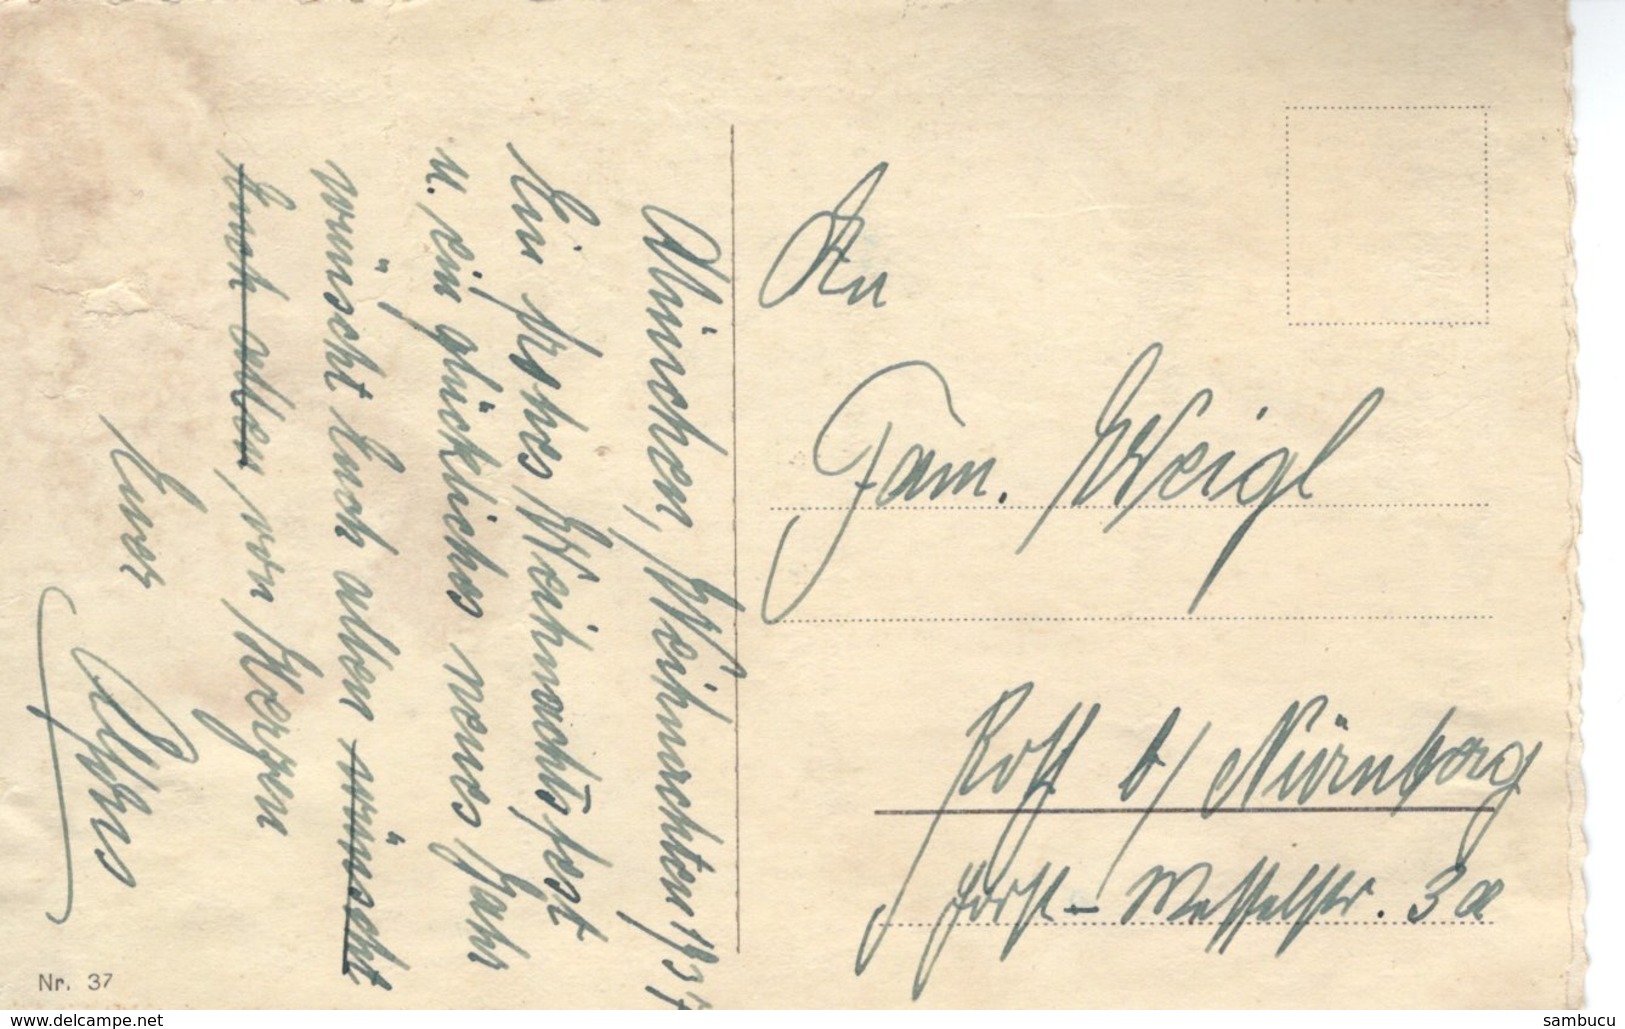 München, Weihnachten 1937
Ein frohes Weihnachtsfest
u. ein glückliches neues Jahr
wünscht Euch allen wünscht
Euch allen, von Herzen
Euer
An
Fam. Weigl
Roth b/ Nürnberg
Horst-Wesselstr. 3a
Nr. 37
www.delcampe.net
sambucu